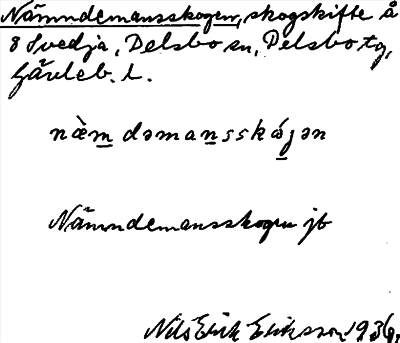 Nämndemansskogen, skogskifte å
8 Svedja, Delsbo sn, Delsbo tg,
Gävleb. l.
næ̀m dəmansskǻgən
Nämndemansskogen jb
Nils Erik Eriksson 1936.